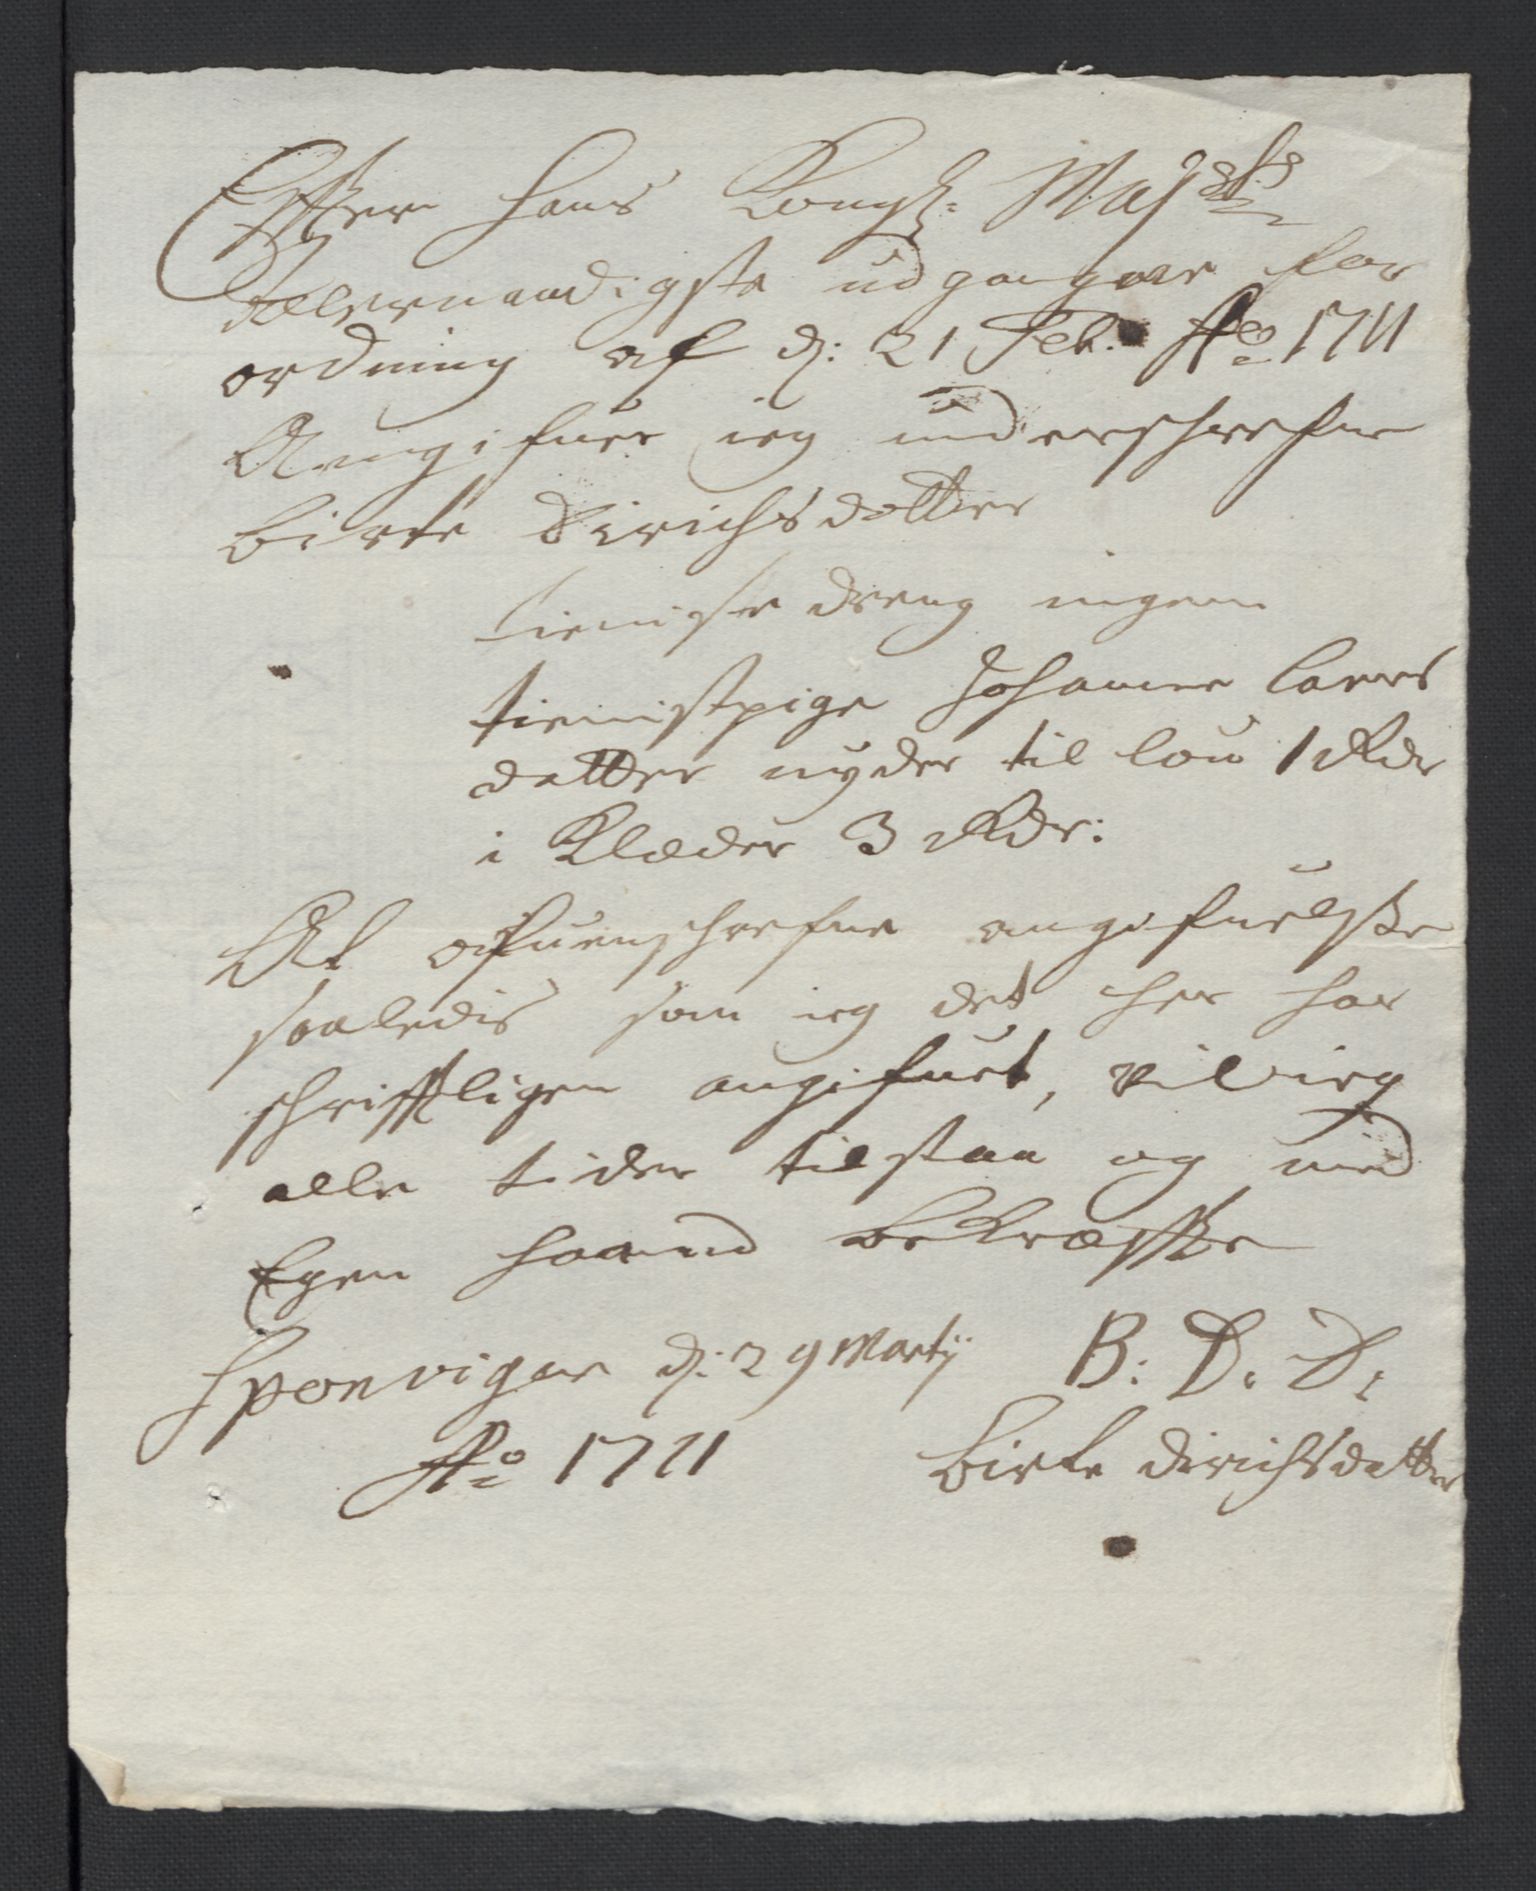 Effter Hans Kongl: Maÿsts
Allernaadigste udgangne for
ordning af d: 21 Feb: Ao 1711
Angifuer ieg underschrefne
Birte Dirichsdotter
tieniste dreng ingen
tienistpige Johanne Laers
datter nyder til lön 1 Rdr
i Klæder 3 Rdr:
At ofuenschrefne angifuelsse
saaledis som ieg det her har
schrifftligen angifuet, vil ieg
alle tider tilstaa og med
Egen haand bekræffte
Sponvigen d: 29 Martij B: D: D:
Ao 1711 Birte Dirichsdatter